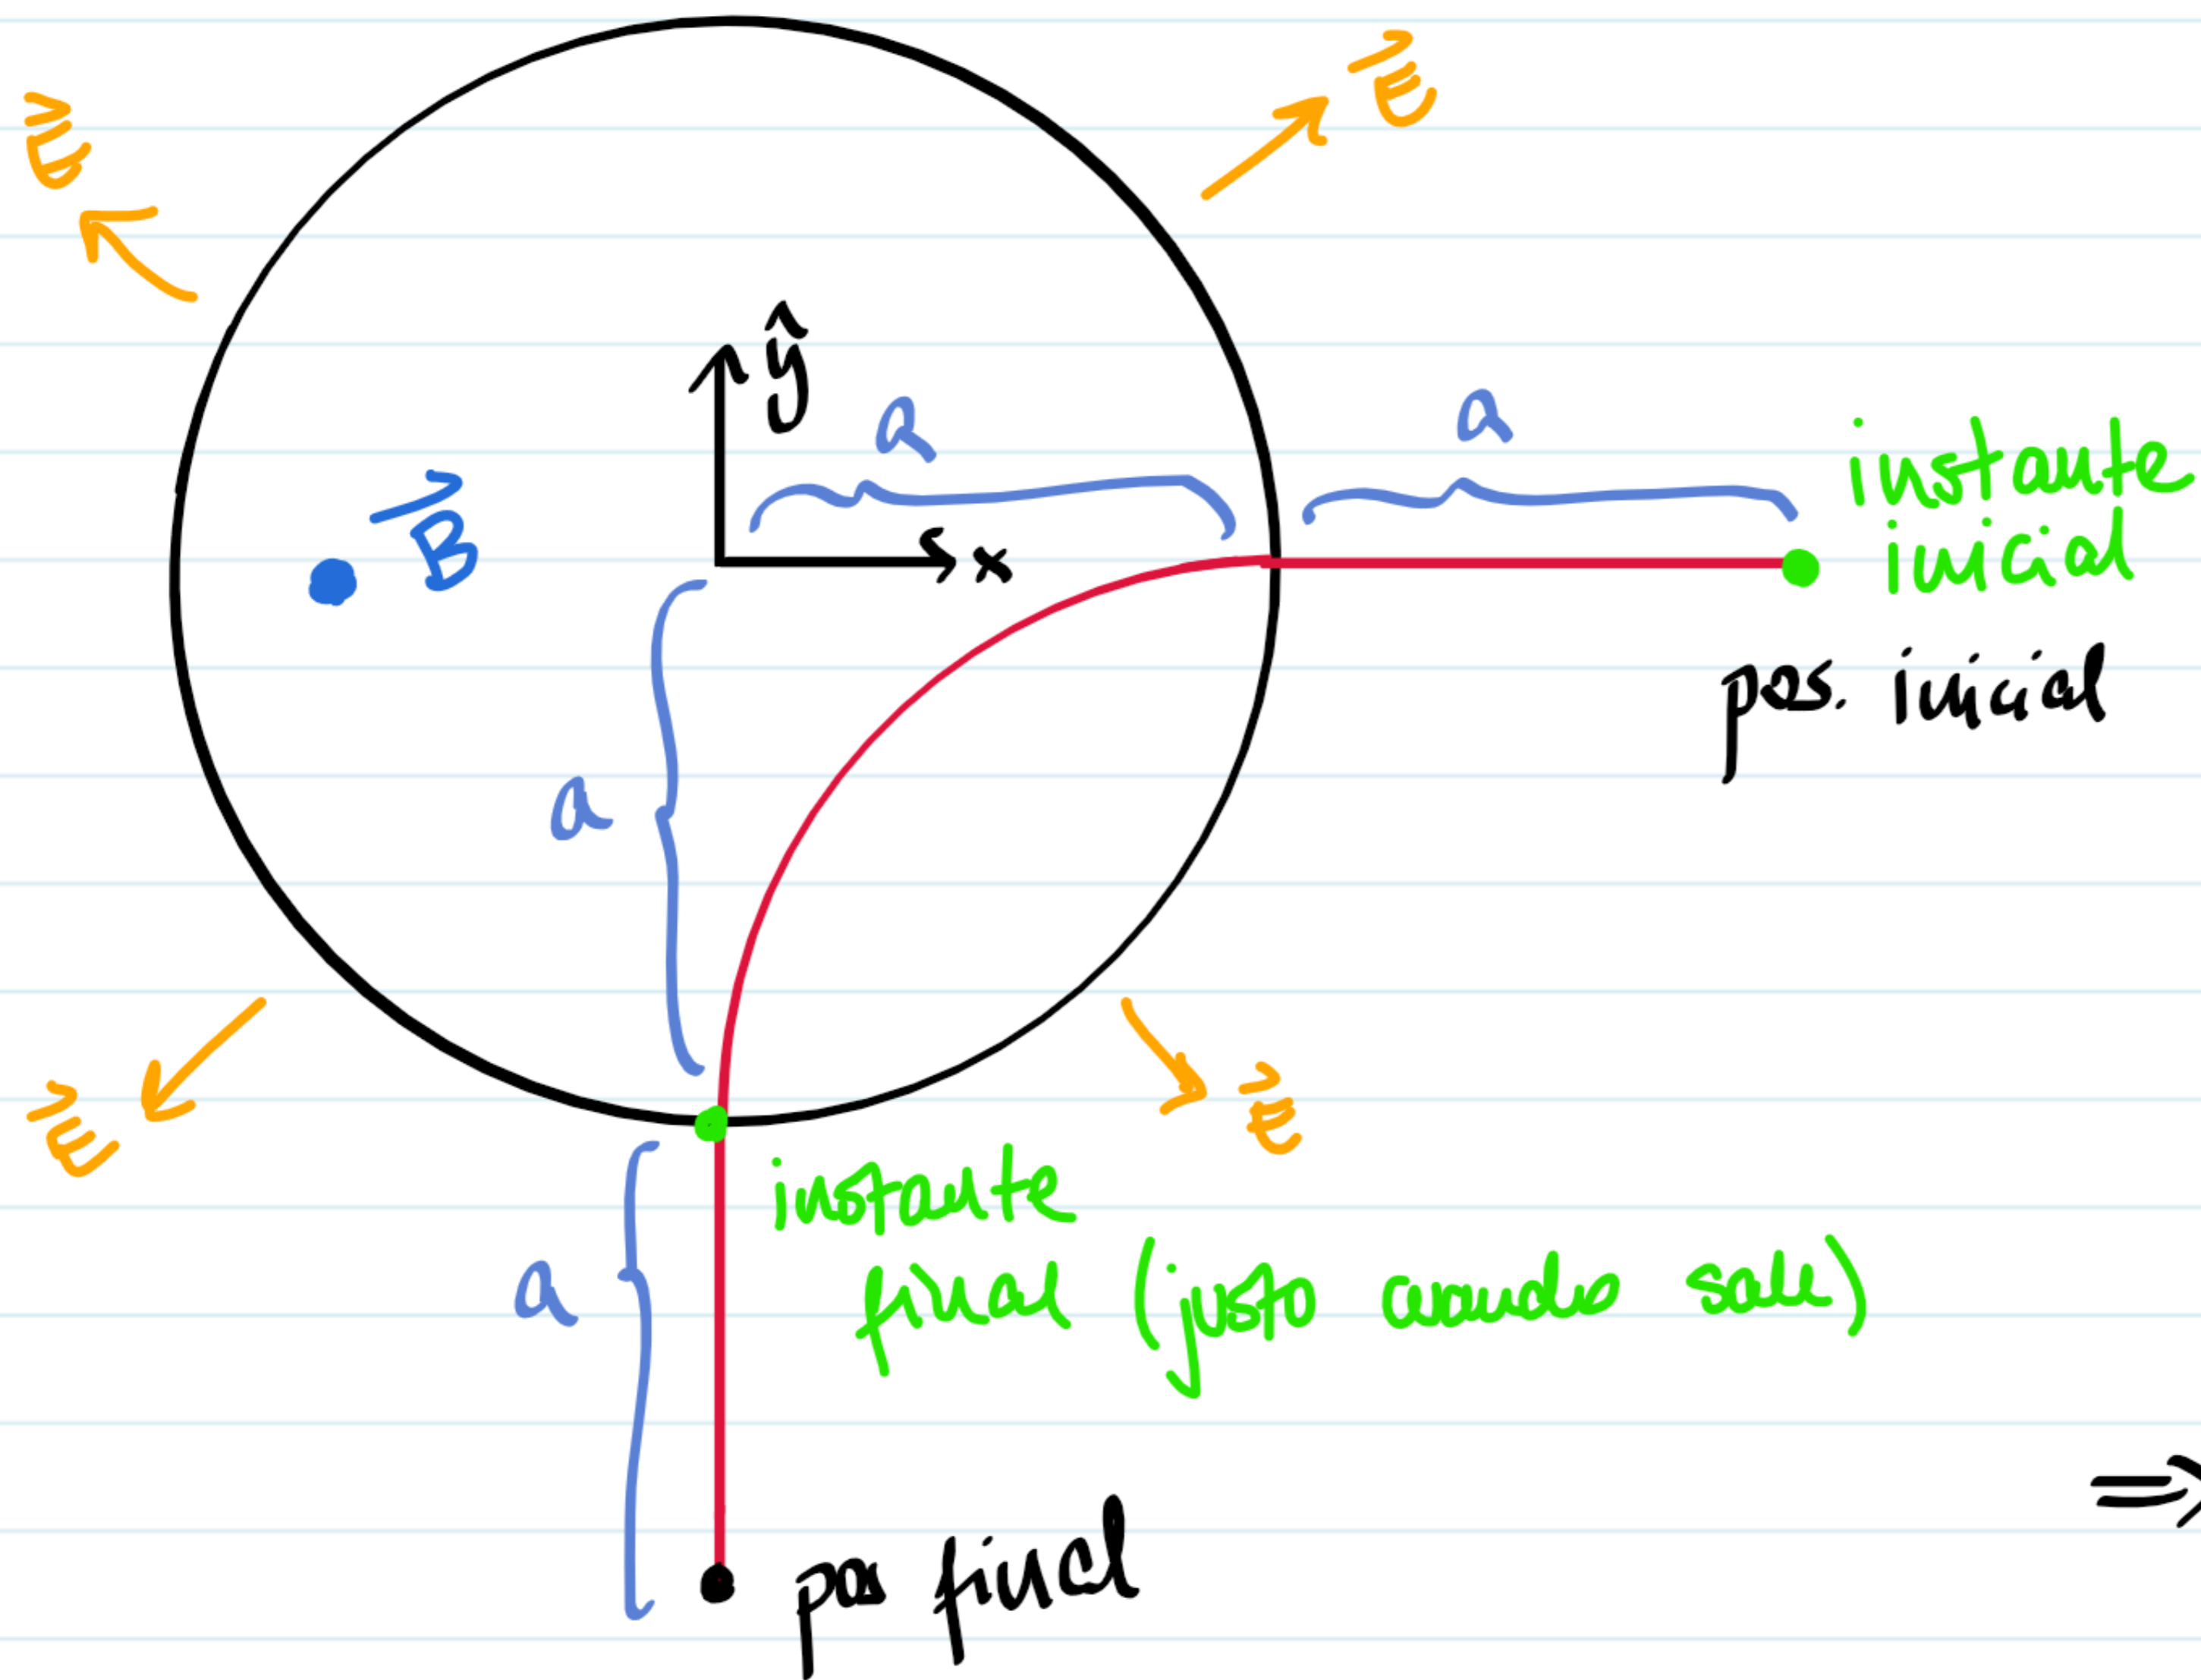 E⃗
E⃗
ŷ
a
a
instante
inicial
B⃗
x
pos. inicial
a
E⃗
E⃗
instante
final (justo cuando sale)
a
⇒
pos final